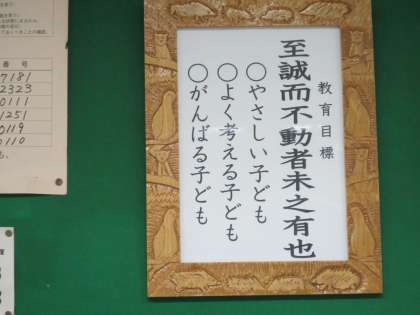 教育目標
至誠而不動者未之有也
○やさしい子ども
○よく考える子ども
○がんばる子ども
番号
7181
2323
0111
1251
0119
0110